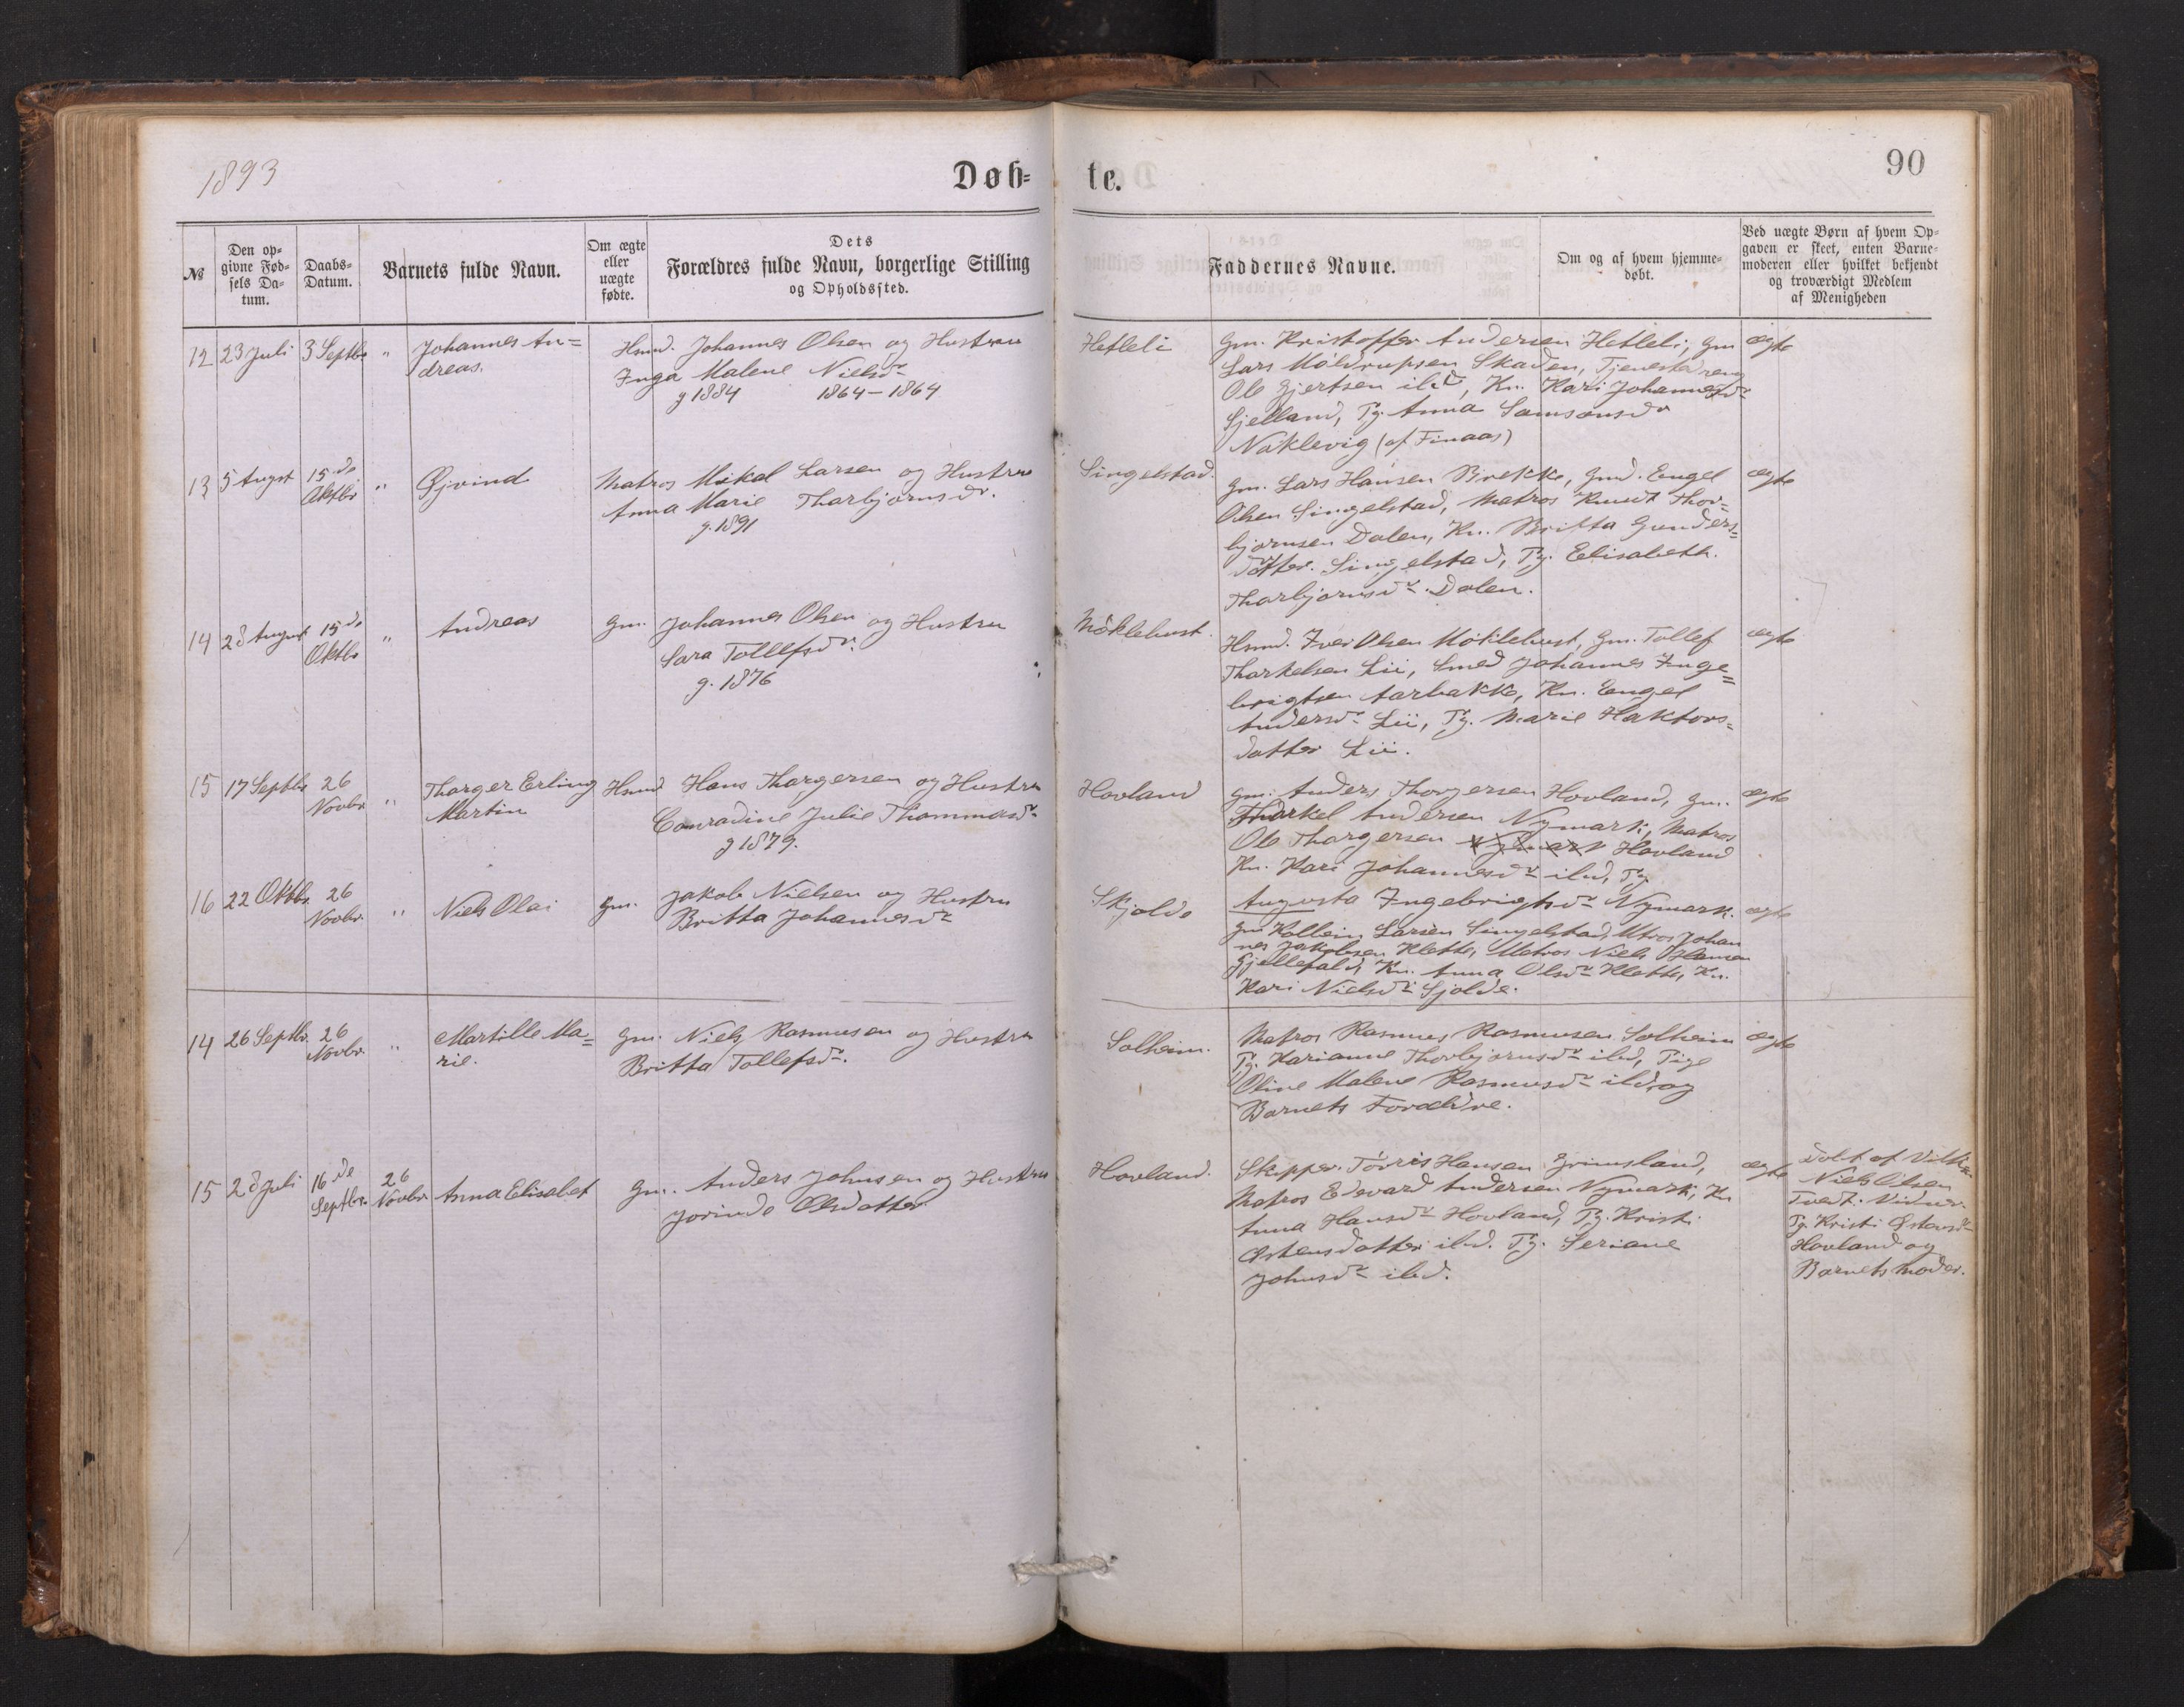 1893
Døb=
te.
90
№
Den op=
givne Fød=
sels Da=
tum.
Daabs=
Datum.
Barnets fulde Navn.
Om ægte
eller
uægte
fødte.
Dets
Forældres fulde Navn, borgerlige Stilling
og Opholdssted.
Faddernes Navne.
Om og af hvem hjemme=
døbt.
Ved uægte Børn af hvem Op=
gaven er skeet, enten Barne=
moderen eller hvilket bekjendt
og troværdigt Medlem
af Menigheden
12 23 Juli 3 Septbr " Johannes An=
dreas.
Hsmd. Johannes Olsen og Hustru
Inga Malene Nielsdr
g 1884 1864-1864
Hetleli
Gm. Kristoffer Andersen Hetleli, Gm
Lars Möldrupsen Skaden, Tjenestedreng
Ole Gjertsen ibd, Kn. Kari Johannesdr
Sjelland, Pg. Anna Samsonsdr
Nöklevig (af Finaas)
ægte
13 5 Augst 15de
Oktbr " Øjvind
Matros Mikal Larsen og Hustru
Anna Marie Thorbjørnsdr.
g. 1891
Singelstad.
Gm. Lars Hansen Brekke, Gmd. Engel
Olsen Singelstad, Matros Knudt Thor=
bjørnsen Dalen, Kn. Britta Gunders=
datter. Singelstad, Pg. Elisabeth.
Thorbjørnsdr. Dalen.
ægte
14 28 August 15de
Oktbr " Andreas
Gm. Johannes Olsen og Hustru
Sara Tollefsdr.
g. 1876
Möklebust.
Hsmd. Iver Olsen Möklebust, Gm. Tollef
Thorkelsen Lii, Smed Johannes Inge=
brigtsen Aarbakke, Kn. Engel
Andersdr Lii, Pg. Marie Haktors=
datter Lii.
ægte
15 17 Septbr 26
Novbr " Thorger Erling
Martin
Hsmd Hans Thorgersen og Hustru
Conradine Julie Thommasdr
g 1879.
Hovland
Gm. Anders Thorgersen Hovland, Gm.
Thorkel Andersen Nymark, Matros
Ole Thorgersen Nymark Hovland
Kn. Kari Johannesdr ibd, Pg.
Augusta Ingebrigtsdr Nymark.
ægte
16 22 Oktbr 26
Novbr. " Niels Olai
Gm. Jakob Nielsen og Hustru
Britta Johannesdr
Skjolde
Gm Kolbein Larsen Singelstad, Mtros Johan
nes Jakobsen Klette, Matros Niels Hansen
Gjellefald, Kn. Anna Olsdr Klette, Kn.
Kari Nielsdr Sjolde.
ægte
14 26 Septbr. 26
Novbr. " Martille Ma=
rie.
Gm. Niels Rasmusen og Hustru
Britta Tollefsdr.
Solheim.
Matros Rasmus Rasmusen Solheim
Pg. Karianne Thorbjørnsdr ibd, Pige
Oline Malene Rasmusdr ibd, og
Barnets Forældre.
ægte
15 28 Juli 16de
Septbr. 26
Novbr. Anna Elisabet
Gm. Anders Johnsen og Hustru
Jorinde Olsdatter
Hovland.
Skipper. Törris Hansen Grimsland,
Matros Edevard Andersen Nymark, Kn
Anna Hansdr Hovland, Pg. Kristi
Østensdatter ibd. Pg. Seriane
Johnsdr ibd.
ægte
Döbt af
Niels Litsen
Tvedt. Vidner.
Pg. Kristi Østensdr
Hovland og
Barnets Moder.